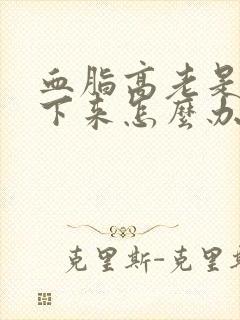 血脂高老是
下来怎麼办
克里斯-克里斯